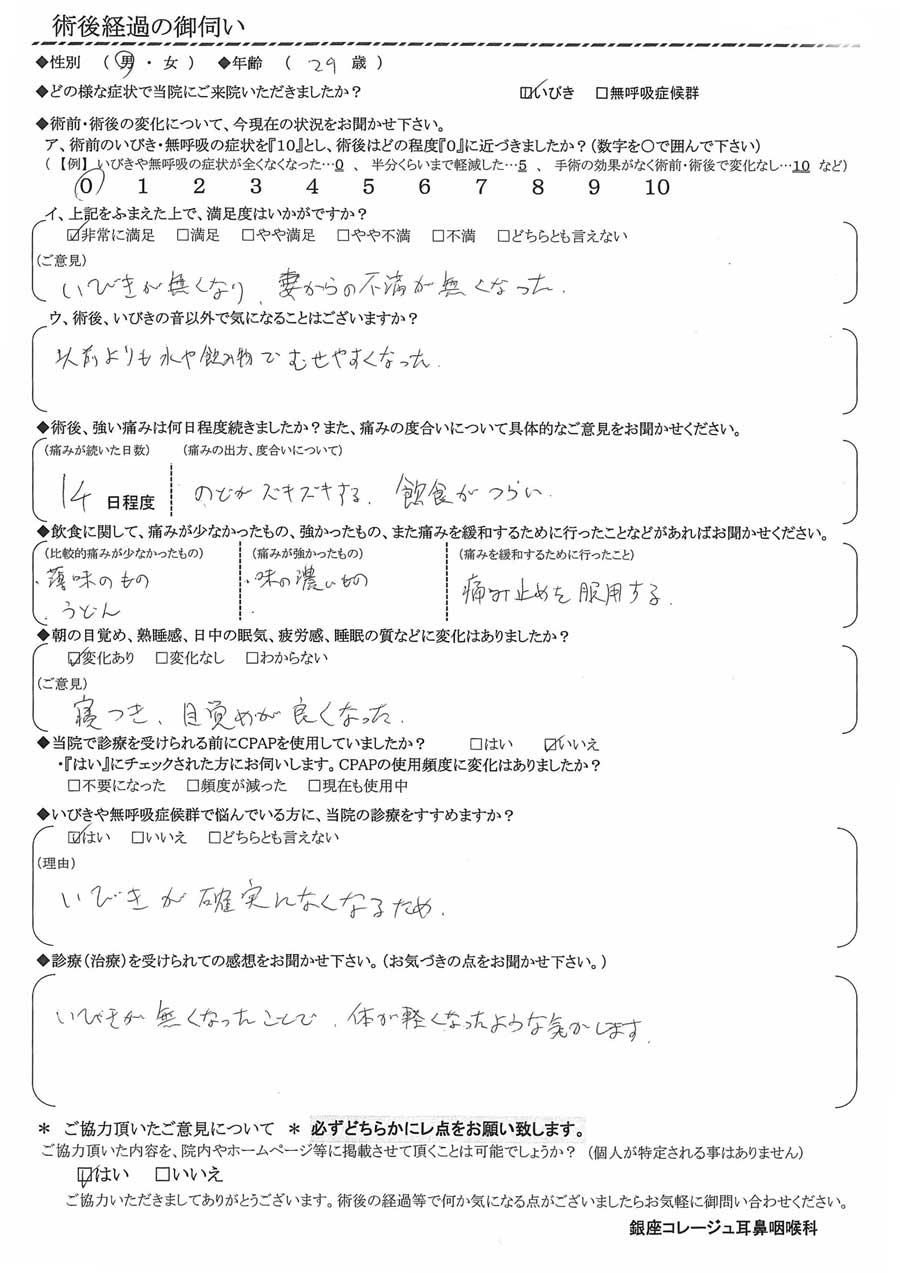 術後経過の御伺い
◆性別 （ 男 ・ 女 ） ◆年齢 （ 29 歳 ）
◆どの様な症状で当院にご来院いただきましたか？ ☑いびき □無呼吸症候群
◆術前・術後の変化について、今現在の状況をお聞かせ下さい。
ア、術前のいびき・無呼吸の症状を『10』とし、術後はどの程度『0』に近づきましたか？（数字を〇で囲んで下さい）
（【例】いびきや無呼吸の症状が全くなくなった…0 、 半分くらいまで軽減した…5 、 手術の効果がなく術前・術後で変化なし…10 など）
0 1 2 3 4 5 6 7 8 9 10
イ、上記をふまえた上で、満足度はいかがですか？
☑非常に満足 □満足 □やや満足 □やや不満 □不満 □どちらとも言えない
（ご意見）
いびきが無くなり、妻からの不満が無くなった.
ウ、術後、いびきの音以外で気になることはございますか？
以前よりも水や飲み物でむせやすくなった.
◆術後、強い痛みは何日程度続きましたか？また、痛みの度合いについて具体的なご意見をお聞かせください。
（痛みが続いた日数） （痛みの出方、度合いについて）
14 日程度 のどがズキズキする. 飲食がつらい.
◆飲食に関して、痛みが少なかったもの、強かったもの、また痛みを緩和するために行ったことなどがあればお聞かせください。
（比較的痛みが少なかったもの） （痛みが強かったもの） （痛みを緩和するために行ったこと）
・薄味のもの ・味の濃いもの 痛み止めを服用する.
・うどん ・
◆朝の目覚め、熟睡感、日中の眠気、疲労感、睡眠の質などに変化はありましたか？
☑変化あり □変化なし □わからない
（ご意見）
寝つき、目覚めが良くなった.
◆当院で診療を受けられる前にCPAPを使用していましたか？ □はい ☑いいえ
・『はい』にチェックされた方にお伺いします。CPAPの使用頻度に変化はありましたか？
□不要になった □頻度が減った □現在も使用中
◆いびきや無呼吸症候群で悩んでいる方に、当院の診療をすすめますか？
☑はい □いいえ □どちらとも言えない
（理由）
いびきが確実になくなるため.
◆診療（治療）を受けられての感想をお聞かせ下さい。（お気づきの点をお聞かせ下さい。）
いびきが無くなったことで、体が軽くなったような気がします.
＊ ご協力頂いたご意見について ＊ 必ずどちらかにレ点をお願い致します。
ご協力頂いた内容を、院内やホームページ等に掲載させて頂くことは可能でしょうか？ （個人が特定される事はありません）
☑はい □いいえ
ご協力いただきましてありがとうございます。術後の経過等で何か気になる点がございましたらお気軽に御問い合わせください。
銀座コレージュ耳鼻咽喉科